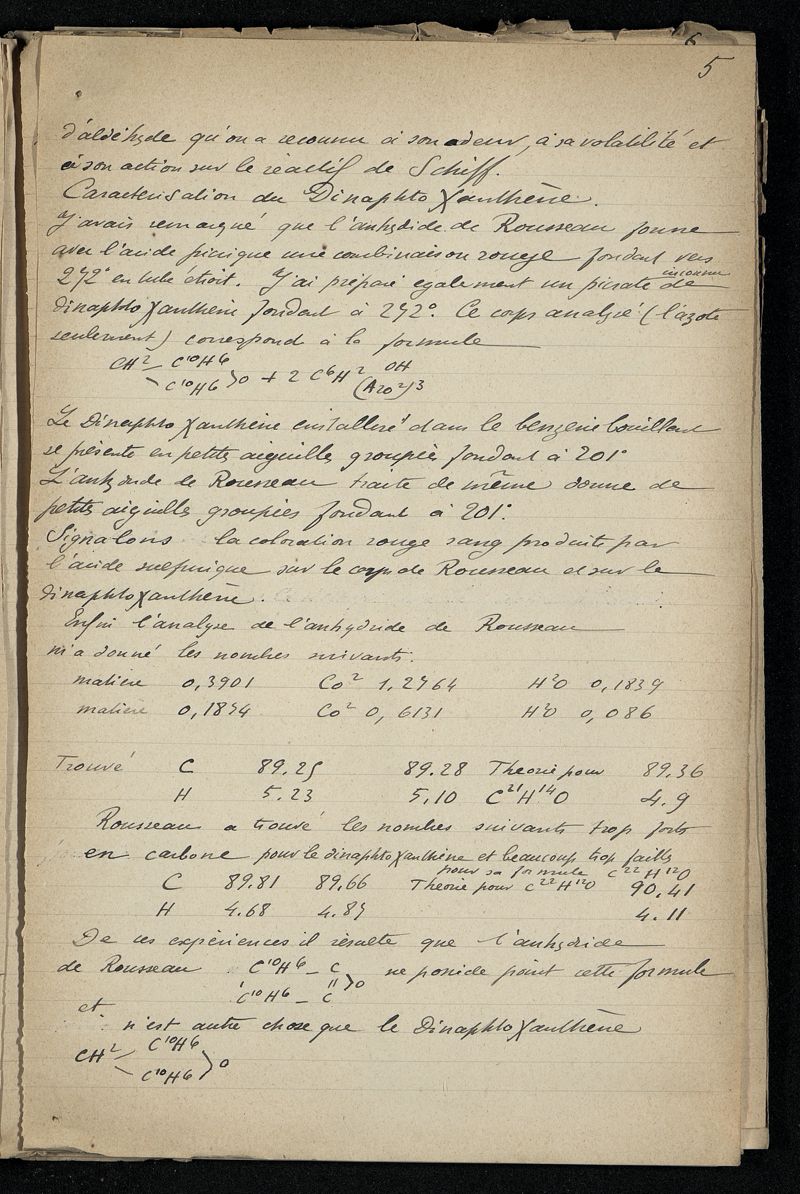 6
5
d'aldéhyde qu'on a reconnu à son odeur, à sa volatilité et
à son action sur le réactif de Schiff.
Caractérisation du Dinaphto Xanthène.
J'avais remarqué que l'anhydride de Rousseau forme
avec l'acide picrique une combinaison rouge fondant vers
272° en tube étroit. J'ai préparé également un picrate inconnu de
dinaphto Xanthène fondant à 272°. Ce corps analysé (l'azote
seulement) correspond à la formule
CH² C¹⁰H⁶ OH
C¹⁰H⁶ >O + 2 C⁶H² (AzO²)³
Le Dinaphto Xanthène cristallisé dans le benzène bouillant
se présente en petites aiguilles groupées fondant à 201°
L'anhydride de Rousseau traité de même donne de
petites aiguilles groupées fondant à 201°.
Signalons la coloration rouge sang produite par
l'acide sulfurique sur le corps de Rousseau et sur le
dinaphto Xanthène.
Enfin l'analyse de l'anhydride de Rousseau
m'a donné les nombres suivants.
matière 0,3901 Co² 1,2764 H²O 0,1839
matière 0,1874 Co² 0,6131 H²O 0,086
Trouvé C 89.25 89.28 Théorie pour 89.36
H 5.23 5,10 C²¹H¹⁴O 4.9
Rousseau a trouvé les nombres suivants trop forts
en carbone pour le dinaphto Xanthène et beaucoup trop faibles
pour sa formule C²²H¹²O
C 89.81 89.66 Théorie pour C²²H¹²O 90,41
H 4.68 4.87 4.11
De ces expériences il résulte que l'anhydride
de Rousseau C¹⁰H⁶ – C ne possède point cette formule
C¹⁰H⁶ – C >O
et
n'est autre chose que le Dinaphto Xanthène
CH² C¹⁰H⁶
C¹⁰H⁶ >O